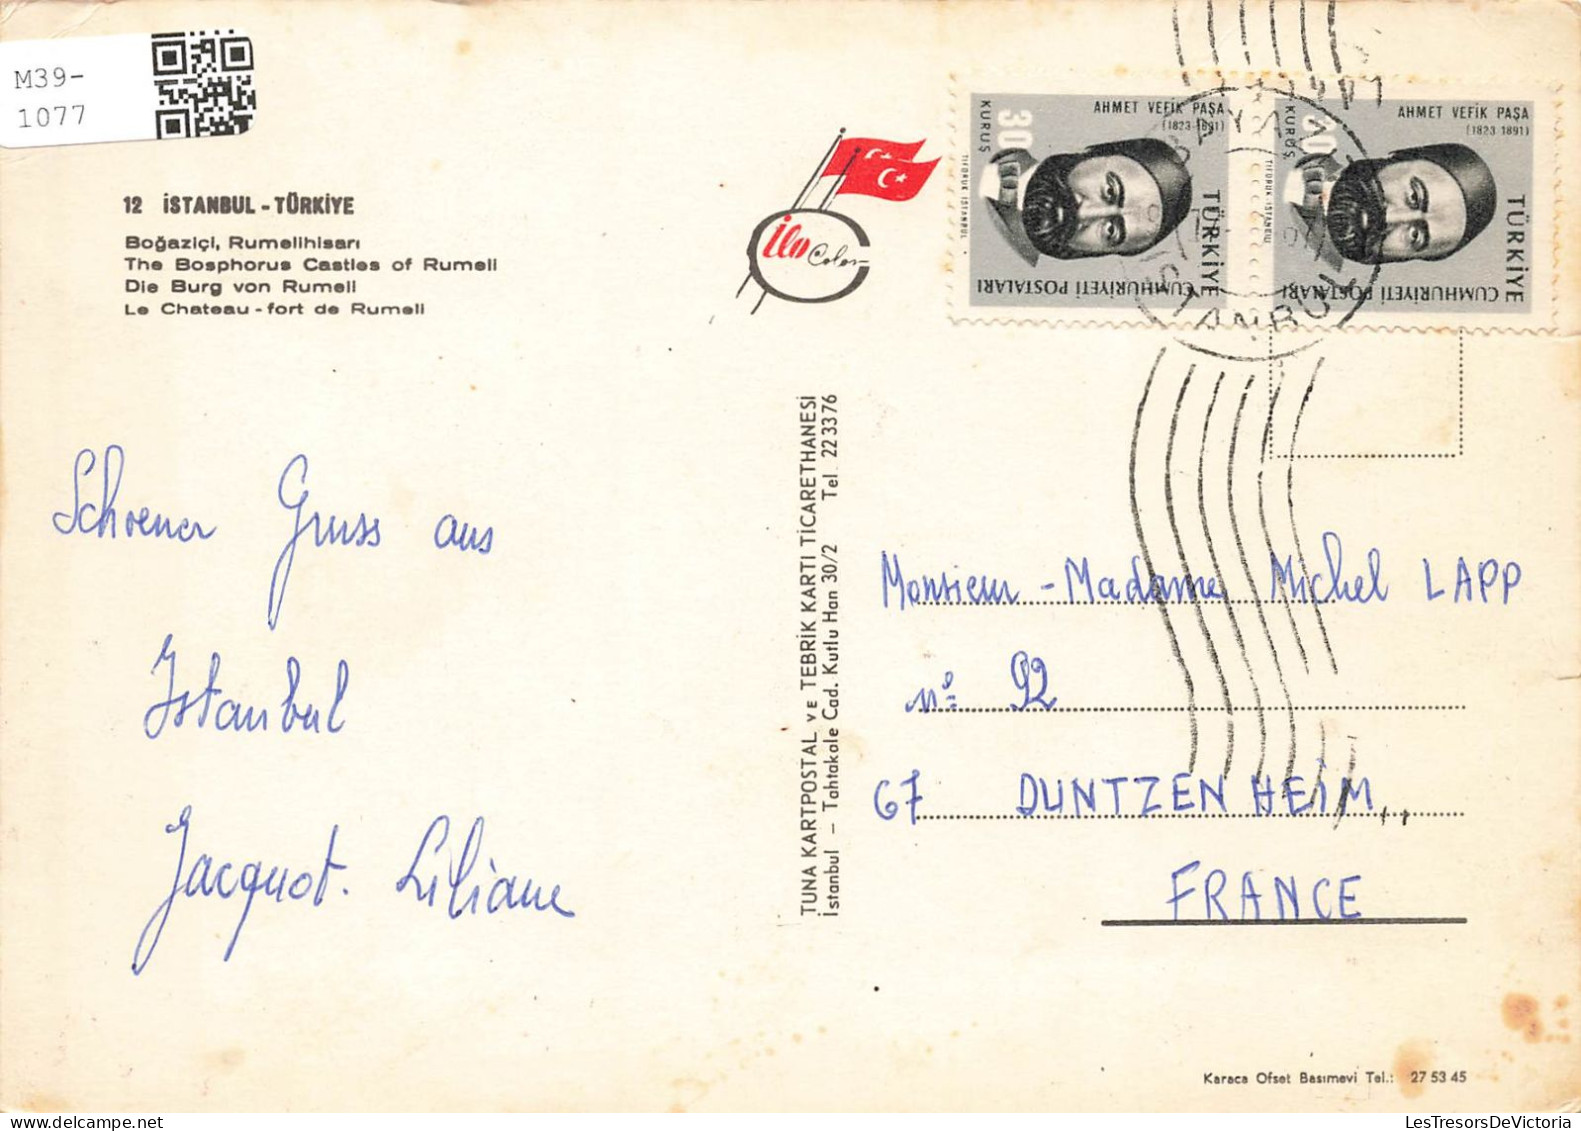 M39-
1077
12 İSTANBUL - TÜRKİYE
Boğaziçi, Rumelihisarı
The Bosphorus Castles of Rumeli
Die Burg von Rumeli
Le Chateau - fort de Rumeli
ilo Color
AHMET VEFİK PAŞA
(1823-1891)
30
KURUŞ
TİFDRUK İSTANBUL
TÜRKİYE
CUMHURİYETİ POSTALARI
AHMET VEFİK PAŞA
(1823-1891)
30
KURUŞ
TİFDRUK İSTANBUL
TÜRKİYE
CUMHURİYETİ POSTALARI
İSTANBUL
Schoener Gruss aus
Istanbul
Jacquot. Liliane
TUNA KARTPOSTAL VE TEBRİK KARTI TİCARETHANESİ
İstanbul – Tahtakale Cad. Kutlu Han 30/2 Tel. 22 33 76
Monsieur - Madame Michel LAPP
n° 92
67 DUNTZENHEIM
FRANCE
Karaca Ofset Basımevi Tel.: 27 53 45
LesTresorsDeVictoria